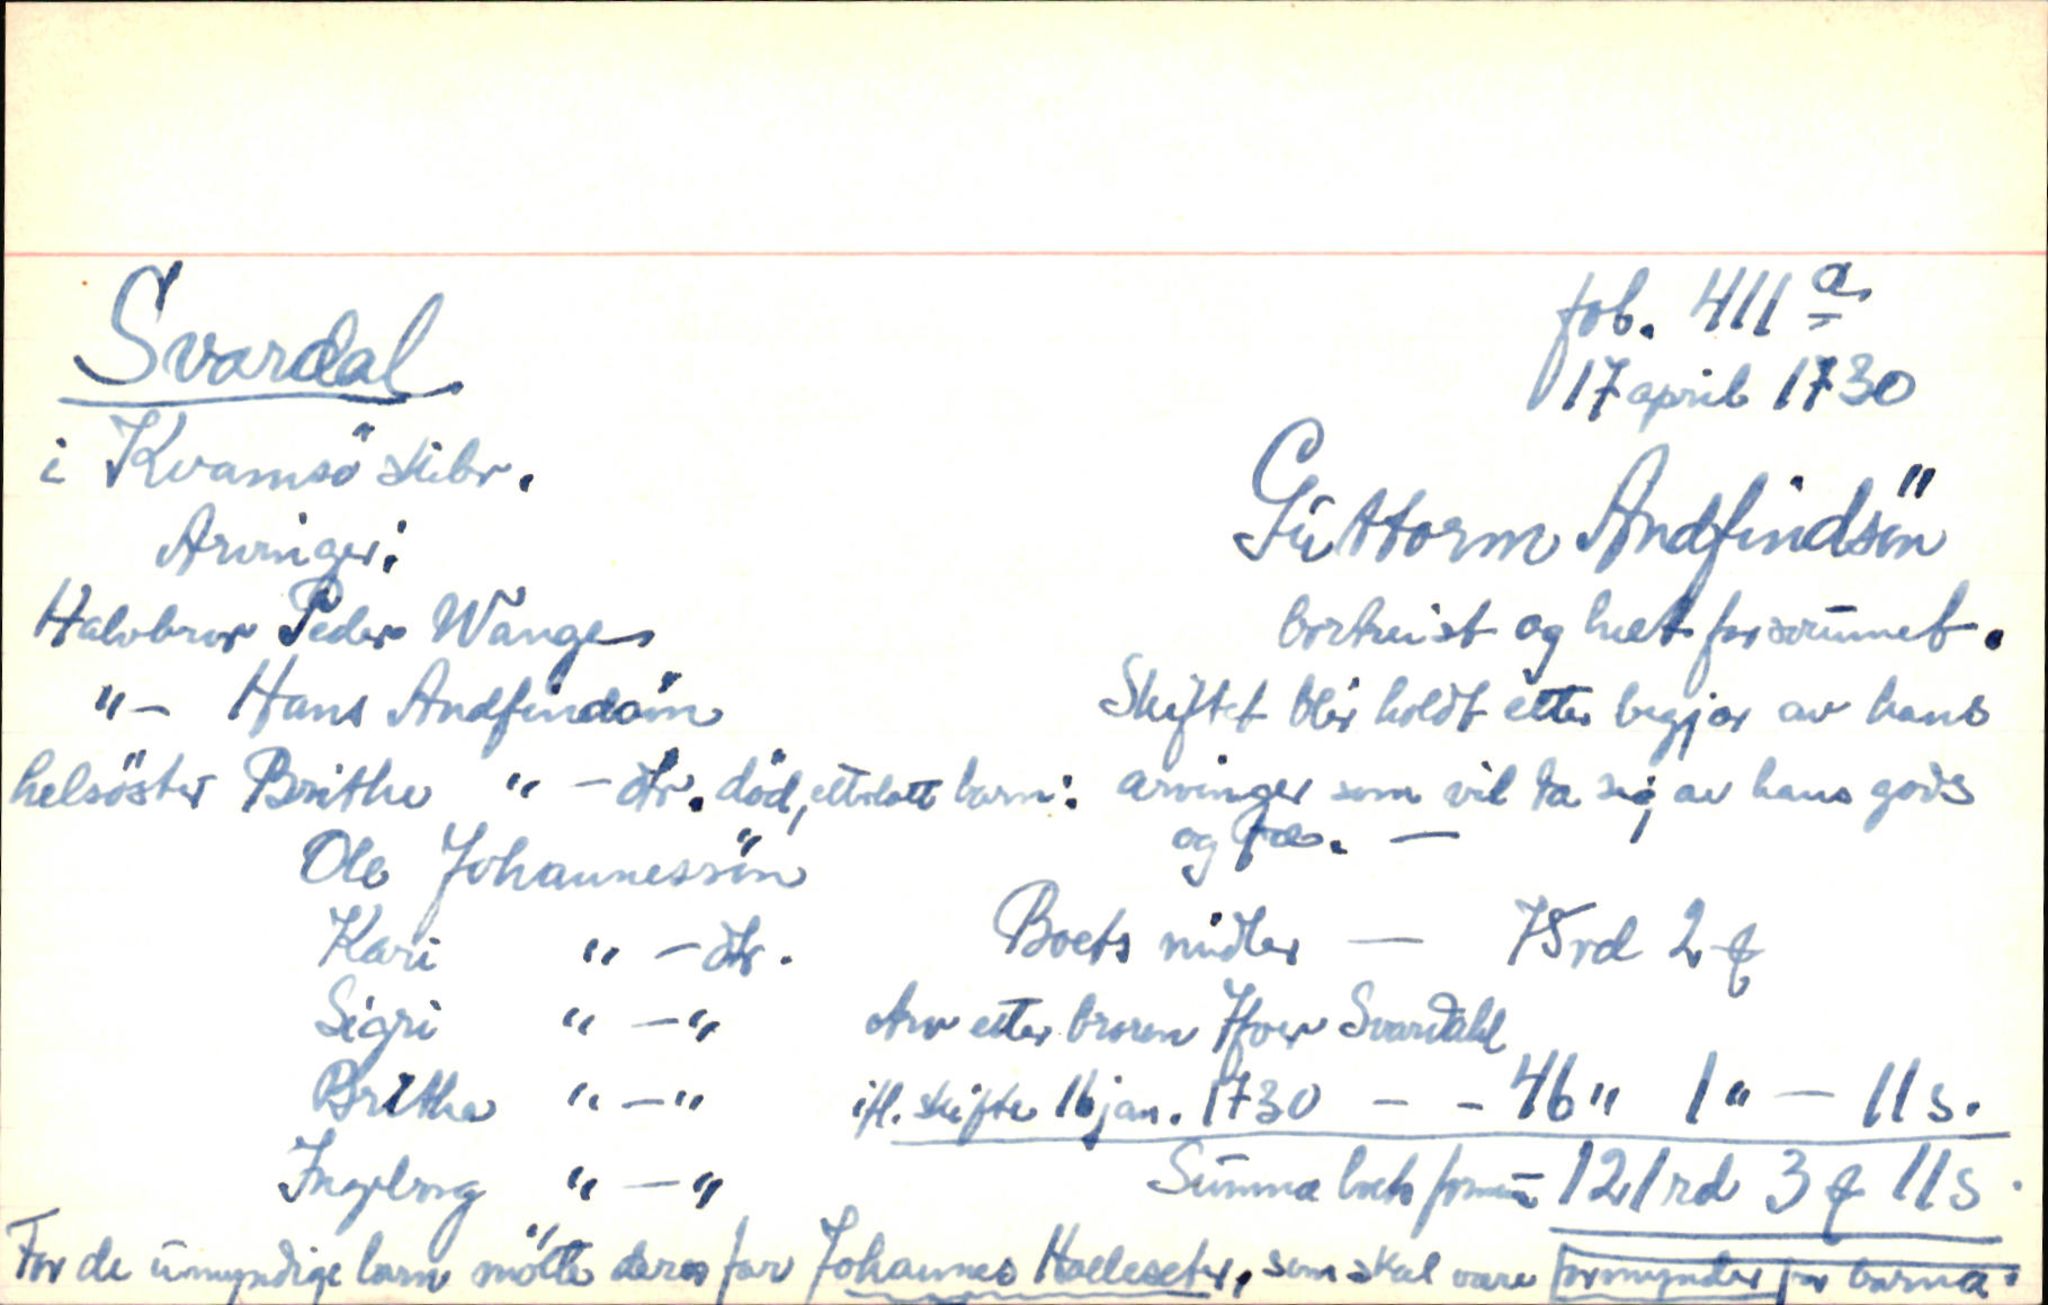 Svardal
fol. 411 a
17 april 1730
i Kvamsö skibr.
Guttorm Andfindsön
Arvinger:
bortreist og helt forsvunnet.
Halvbror Peder Wange
Skiftet blir holdt etter begjær av hans
"- Hans Andfindsön
arvinger som vil ta sig av hans gods
helsöster Brithe " - dtr. död, etterlatt barn:
og fæ. —
Ole Johannessön
Boets midler — 75 rd 2 f
Kari " - dtr.
Arv etter broren Ifver Svardahl
Sigri " - "
ifl. skifte 16 jan. 1730 - - 46 " 1 " - 11 s.
Britha " - "
Summa boets formue 121 rd 3 f 11 s.
Ingeborg " - "
For de umyndige barn mötte deres far Johannes Hælleseter, som skal være formynder for barna.